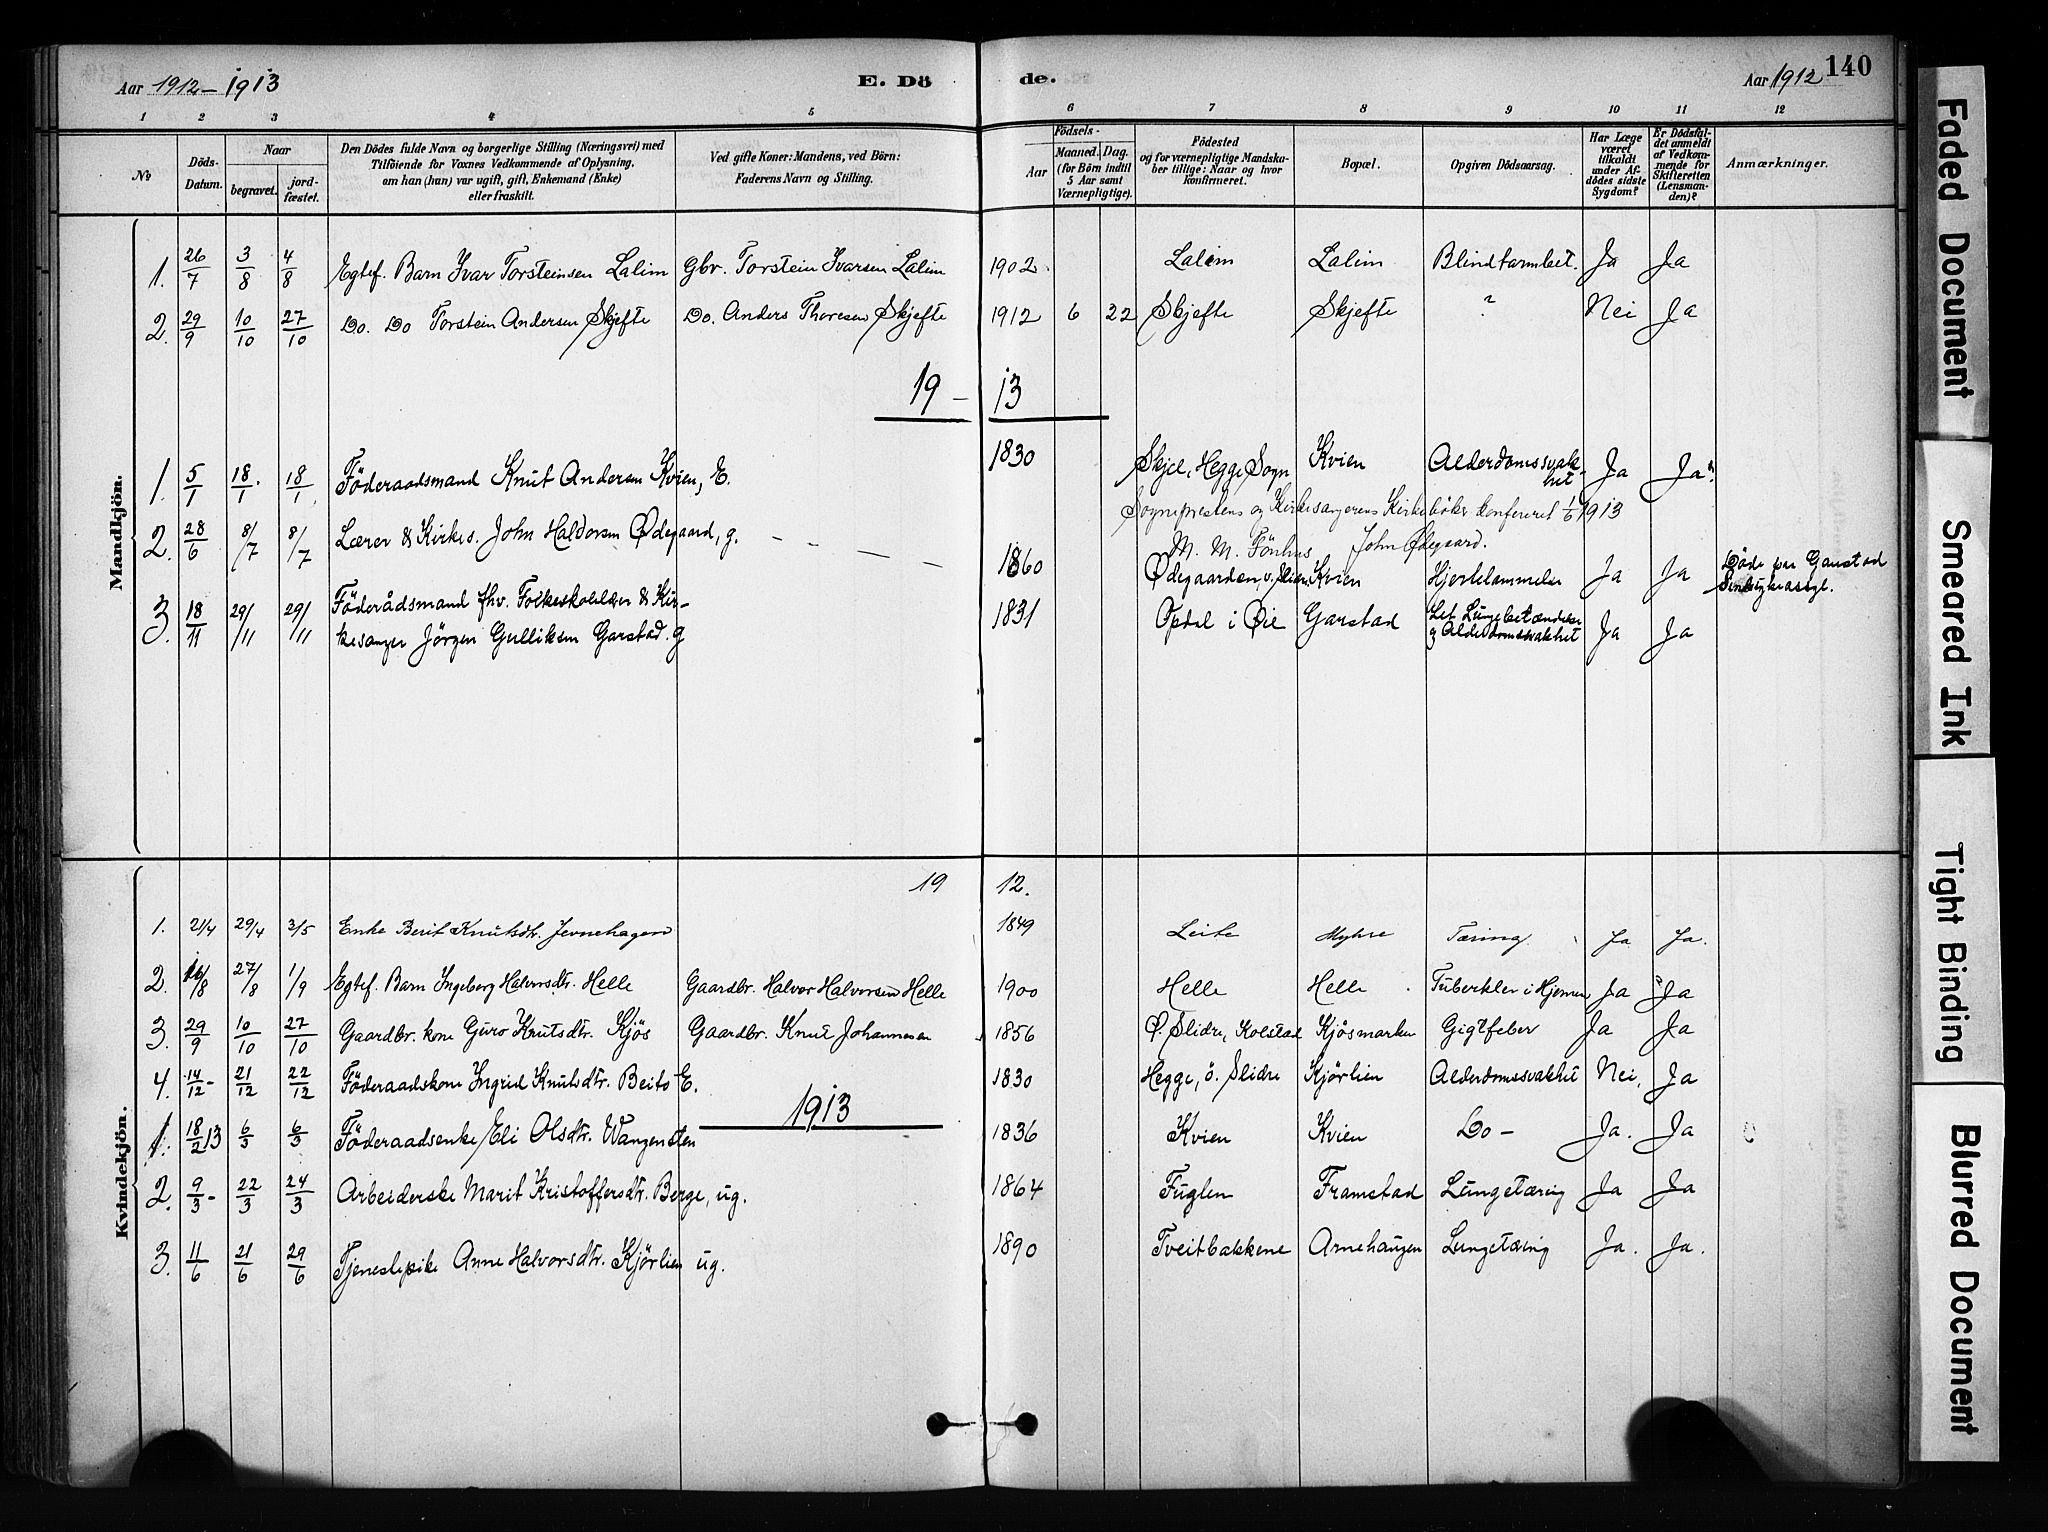 Aar 1912 – 1913 E. Dö de. Aar 1912 140
1 2 3 4 5 6 7 8 9 10 11 12
No
Döds-Datum.
Naar
begravet.
jord-fæstet.
Den Dödes fulde Navn og borgerlige Stilling (Næringsvei) med
Tilföiende for Voxnes Vedkommende af Oplysning,
om han (hun) var ugift, gift, Enkemand (Enke)
eller fraskilt.
Ved gifte Koner: Mandens, ved Börn:
Faderens Navn og Stilling.
Födsels-
Aar
Maaned. Dag.
(for Börn indtil
5 Aar samt
Værnepligtige).
Födested
og for værnepligtige Mandska-
ber tillige: Naar og hvor
konfirmeret.
Bopæl.
Opgiven Dödsaarsag.
Har Læge
været
tilkaldt
under Af-
dödes sidste
Sygdom?
Er Dödsfal-
det anmeldt
af Vedkom-
mende for
Skifteretten
(Lensman-
den)?
Anmærkninger.
Mandkjön.
1. 26/7 3/8 4/8 Egtef. Barn Ivar Torsteinsen Lalim Gbr. Torstein Ivarsen Lalim 1902 Lalim Lalim Blindtarmbet. Ja Ja
2. 29/9 10/10 27/10 Do. Do Torstein Andersen Skjefte Do. Anders Thoresen Skjefte 1912 6 22 Skjefte Skjefte ? Nei Ja
19 – 13
1. 5/1 18/1 18/1 Föderaadsmand Knut Andersen Kvien, E. 1830 Skjel, Hegge Sogn Kvien Alderdomssvak-
het Ja Ja
Sogneprestens og Kirkesangerens Kirkebøker konfereret 1/6 1913
M. M. Fönhus John Ødegaard.
2. 28/6 8/7 8/7 Lærer & Kirkes. John Haldorsen Ødegaard, g. 1860 Ødegaarden, v. Slidre Kvien Hjertelammelse Ja Ja Döde paa
3. 18/11 29/11 29/11 Föderådsmand fhv. Folkeskolelærer & Kir-
kesanger Jörgen Gulliksen Garstad. g 1831 Opdal i Øie Garstad Let Lungebetændelse
og Alderdomssvakhet Ja Ja
Kvindekjön.
19 12.
1. 21/4 29/4 3/5 Enke Berit Knutsdtr. Jevnehagen 1849 Leite Myhre Tæring Ja Ja.
2. 16/8 27/8 1/9 Egtef. Barn Ingeberg Halvorsdtr. Helle Gaardbr. Halvor Halvorsen Helle 1900 Helle Helle Tuberkler i Hjernen Ja Ja
3. 29/9 10/10 27/10 Gaardbr. kone Guro Knutsdtr. Kjös Gaardbr. Knut Johannesen 1856 Ö. Slidre, Kolstad Kjösmarken Gigtfeber Ja Ja
4. 14/12 – 21/12 22/12 Föderaadskone Ingrid Knutsdtr. Beito E. 1830 Hegge, ö. Slidre Kjörlien Alderdomssvakhet Nei, Ja
1913
1. 18/2 13 6/3 6/3 Föderaadsenke Eli Olsdtr. Wangensten 1836 Kvien Kvien Do – Ja. Ja
2. 9/3 – 22/3 24/3 Arbeiderske Marit Kristoffersdtr. Berge, ug. 1864 Fuglen Framstad Lungetæring Ja Ja
3. 11/6 21/6 29/6 Tjenestepike Anne Halvorsdtr. Kjörlien ug. 1890 Tveitbakkene Arnehaugen Lungetæring Ja. Ja.
Faded Document
Smeared Ink
Tight Binding
Blurred Document